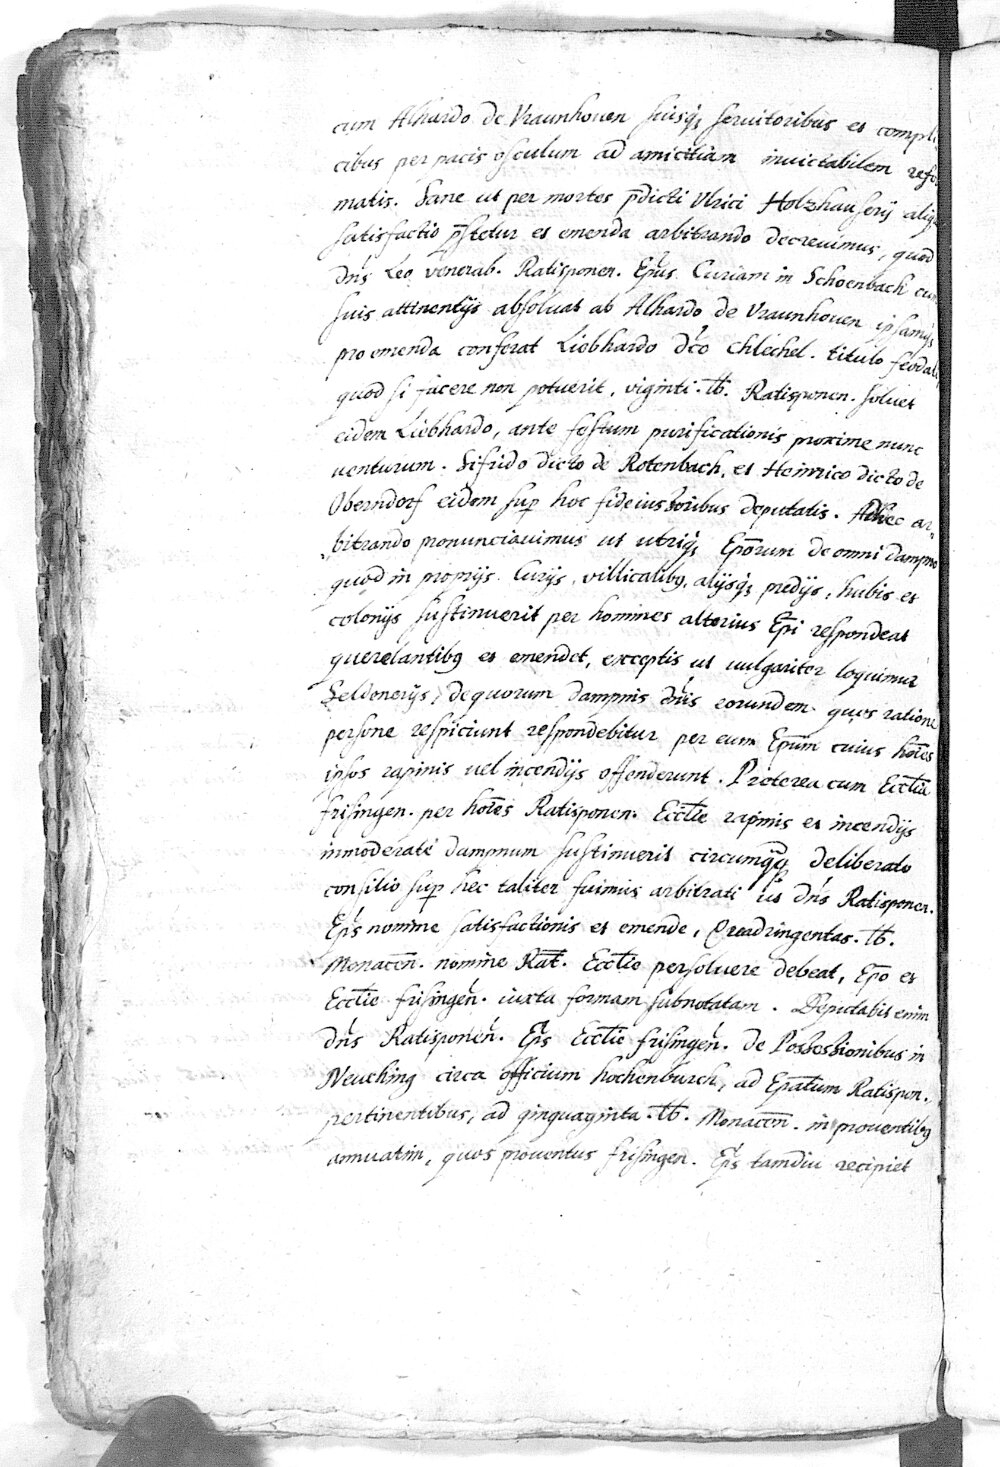 cum Alhardo de Vraunhouen suisq; seruitoribus et compli-
cibus per pacis osculum ad amicitiam inuictabilem refor
matis. Sane ut per mortes p̄dicti Vlrici Holzhauserij aliqu
satisfactio p̄stetur et emenda arbitrando decreuimus, quod
dn̄s Leo venerab. Ratisponen. Ep̄us Curiam in Schoenbach cum
suis attinentijs absoluat ab Alhardo de Vraunhouen ipsamq;
pro emenda conferat Liebhardo dc̄o Chlechel. titulo feodali,
quod si facere non potuerit, viginti. lb. Ratisponen. soluet
eidem Liebhardo, ante festum purificationis proxime nunc
venturum. Sifrido dicto de Rotenbach, et Heinrico dicto de
Oberndorf eidem sup̱ hoc fideiussoribus deputatis. Adhec ar-
bitrando pronunciauimus ut utriq; Ep̄orum de omni dampno
quod in proprijs Curijs, villicalibq, alijsq; predijs, hubis et
colonijs sustinuerit per homines alterius Ep̄i respondeat
querelantibq et emendet, exceptis ut uulgariter loquimur
Seldenerijs, de quorum dampnis dn̄is eorundem quos ratione
persone respiciunt respondebitur per eum Ep̄um cuius hoīes
ipsos rapinis uel incendijs offenderunt. Preterea cum Eccl̄ia
frisingen. per hoīes Ratisponen. Eccl̄ie rapinis et incendijs
inmoderate dampnum sustinuerit circumq̄q; deliberato
consilio sup̱ hec taliter fuimus arbitrati ut dn̄s Ratisponen.
Ep̄s nomine satisfactionis et emende, Quadringentas. lb.
Monacen̄. nomine Rat̄. Eccl̄ie persoluere debeat, Ep̄o et
Eccl̄ie frisingen̄. iuxta formam subnotatam. Deputabit enim
dn̄s Ratisponen̄. Ep̄s Eccl̄ie frisingen̄. de Possessionibus in
Neuching circa officium hochenburch, ad Ep̄atum Ratispon.
pertinentibus, ad qinquaginta. lb. Monacen̄. in prouentibq
annuatim, quos prouentus frisingen. Ep̄s tamdiu recipiet